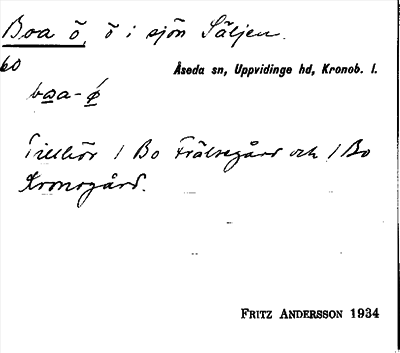 Boa ö, ö i sjön Säljen.
60
Åseda sn, Uppvidinge hd, Kronob. l.
boa-ø
Tillhör 1 Bo Frälsegård och 1 Bo
Kronogård.
FRITZ ANDERSSON 1934